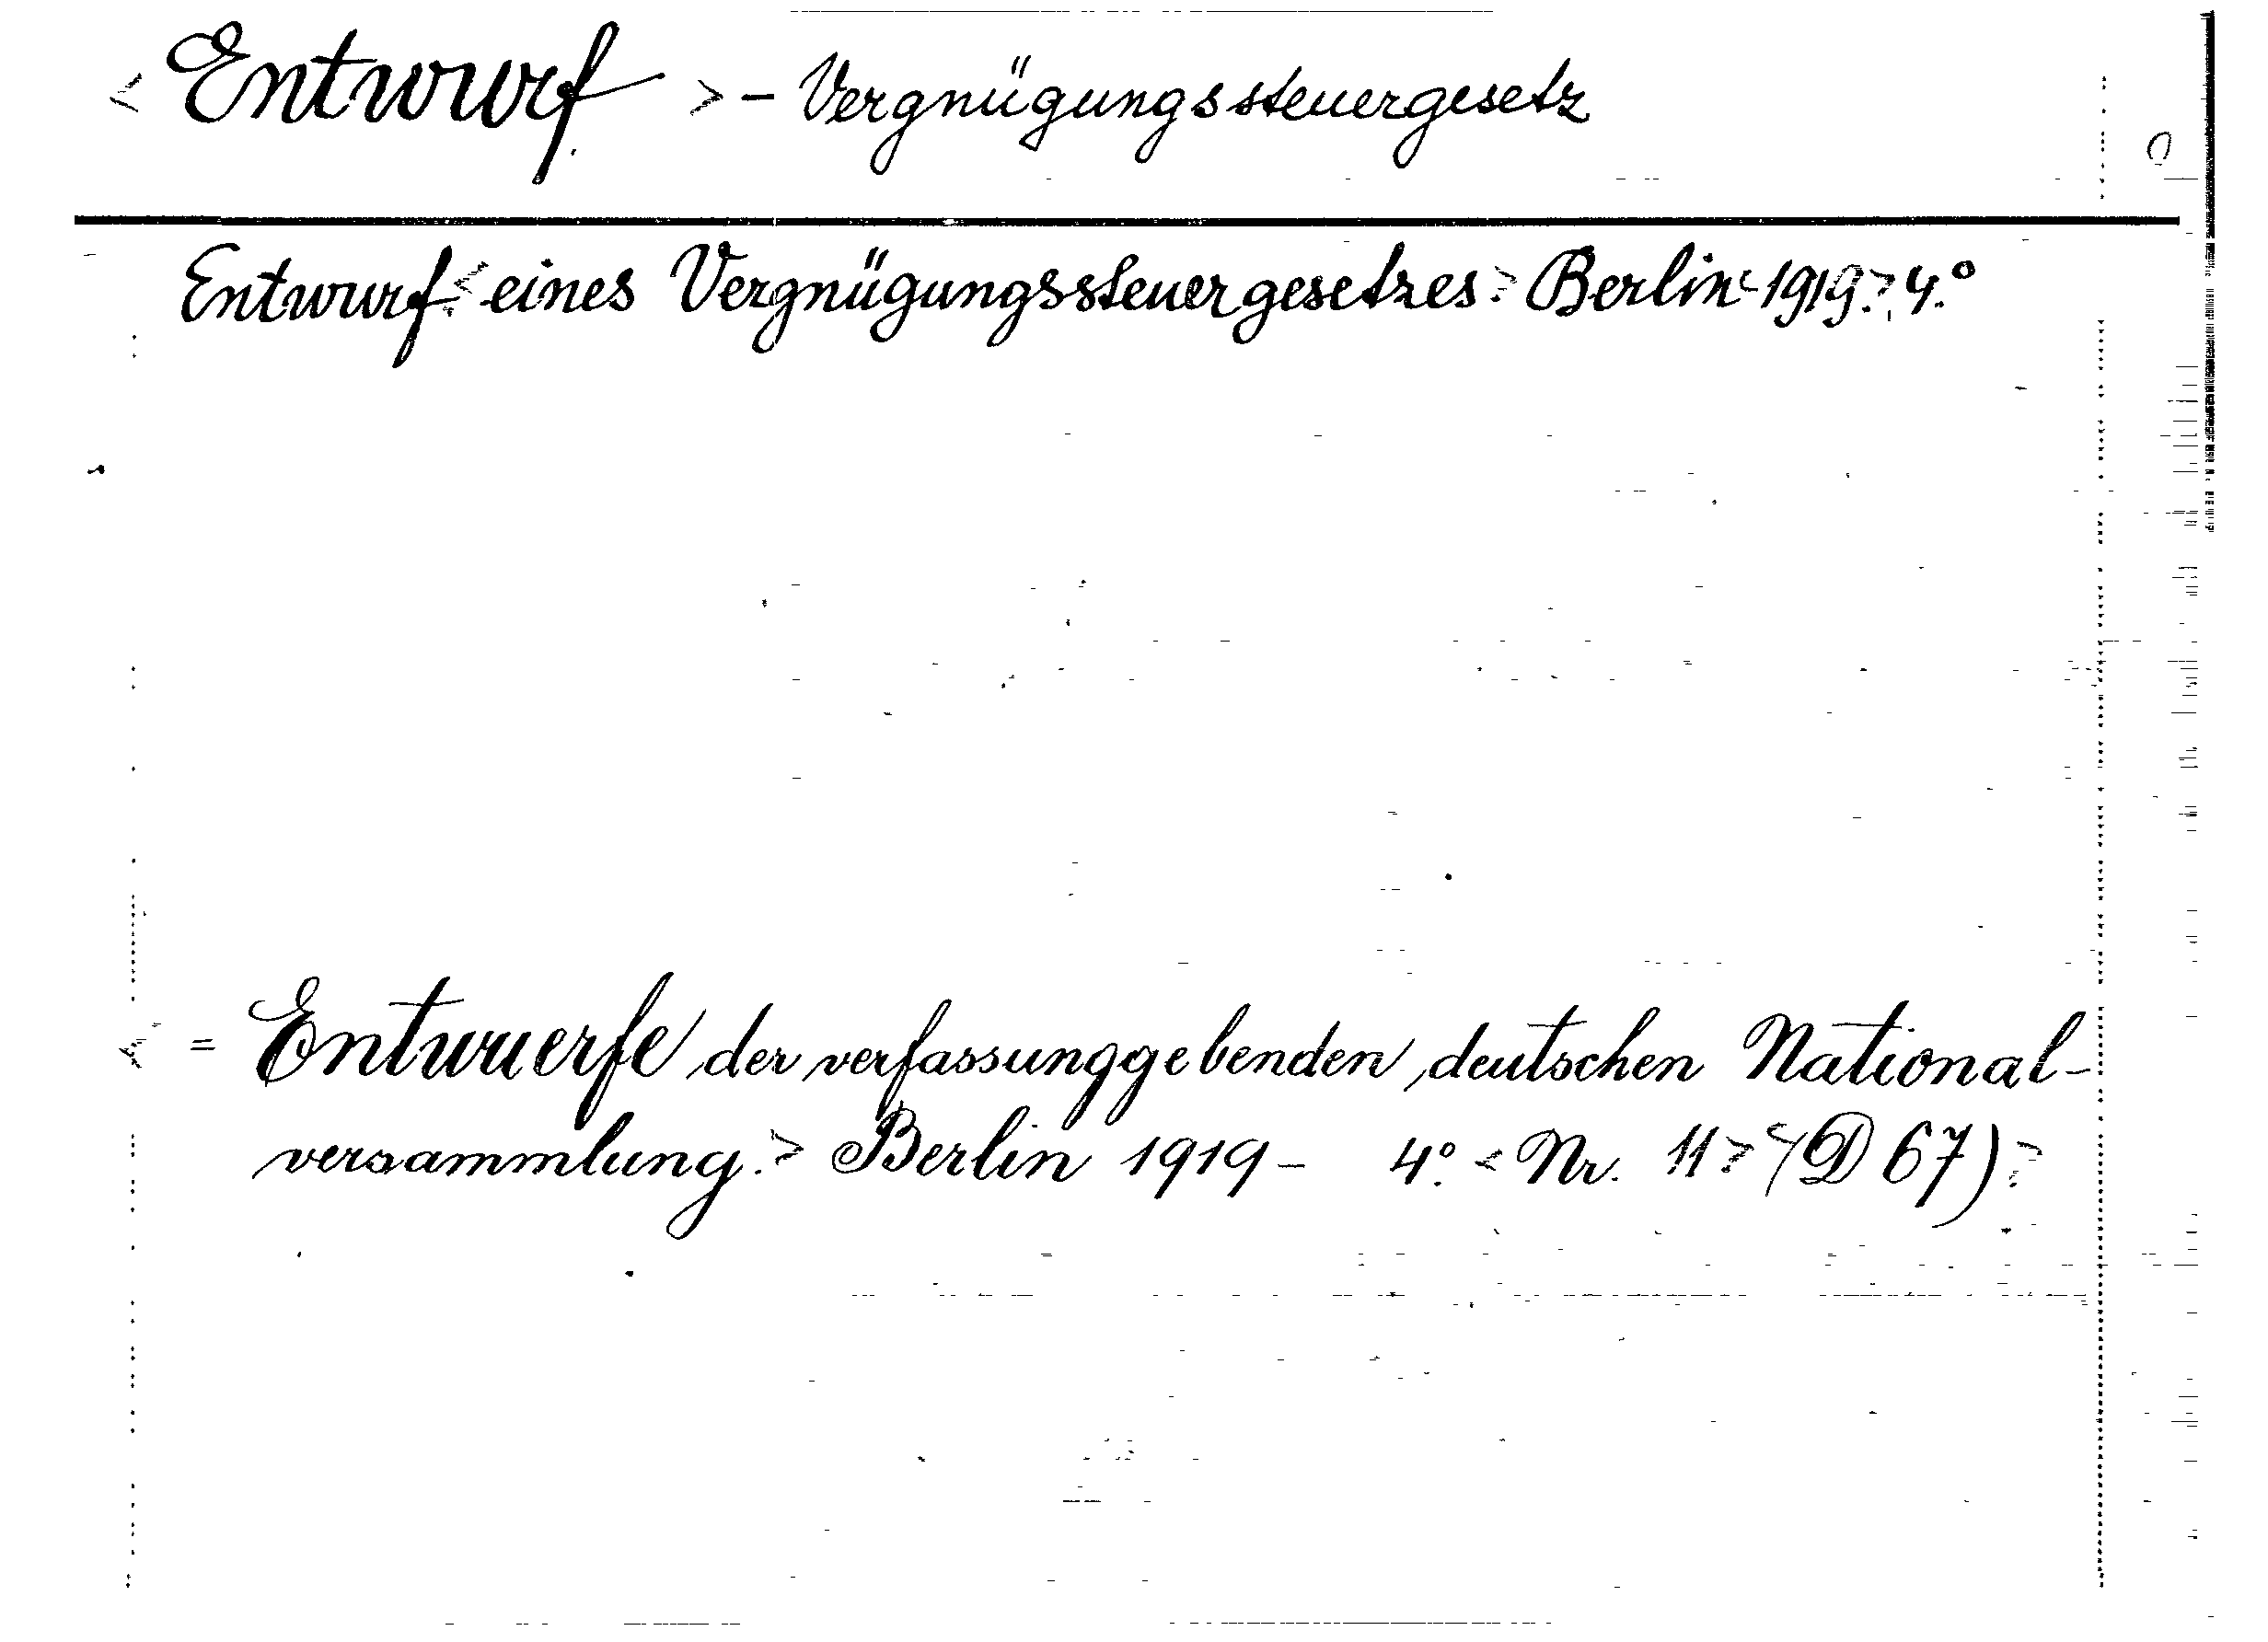 < Entwurf > - Vergnügungssteuergesetz
Entwurf < eines Vergnügungssteuergesetzes > Berlin < 1919. > 4.°
< = Entwuerfe der verfassunggebenden deutschen National-
versammlung. > Berlin 1919 - 4.° < Nr. 11 > < (D 67) >